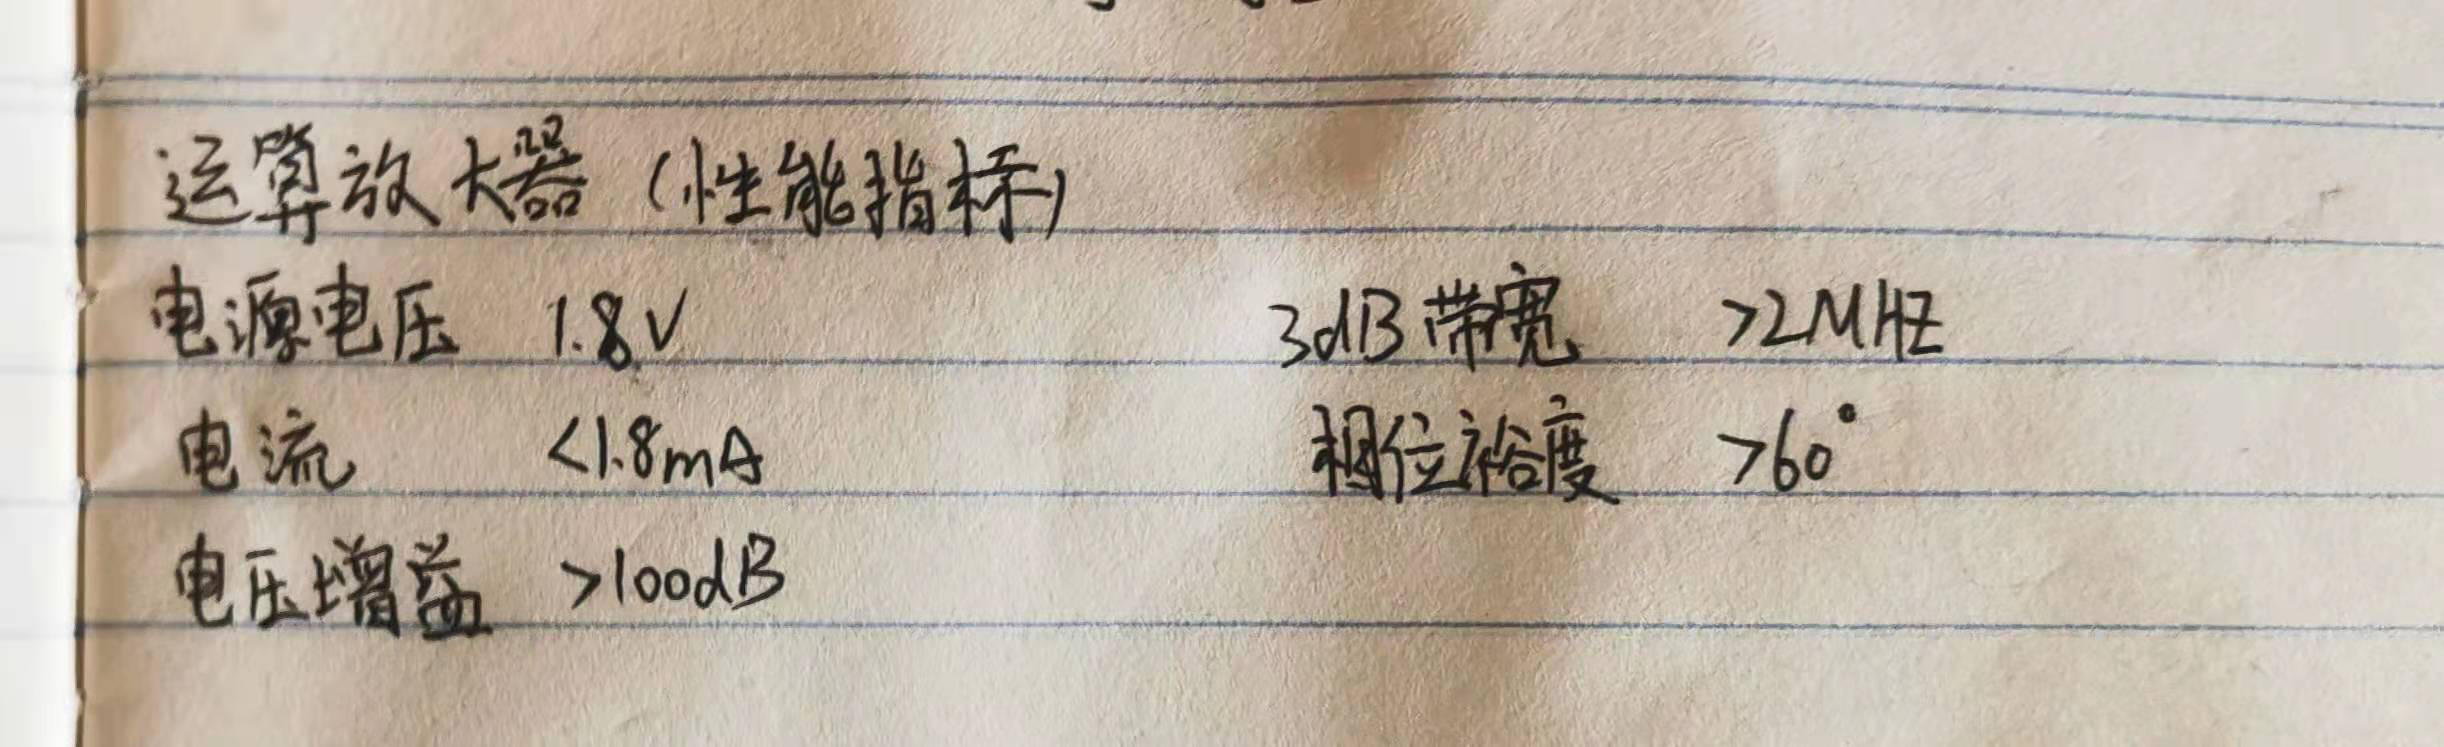 运算放大器（性能指标）
电源电压 1.8V 3dB带宽 >2MHz
电流 <1.8mA 相位裕度 >60°
电压增益 >100dB